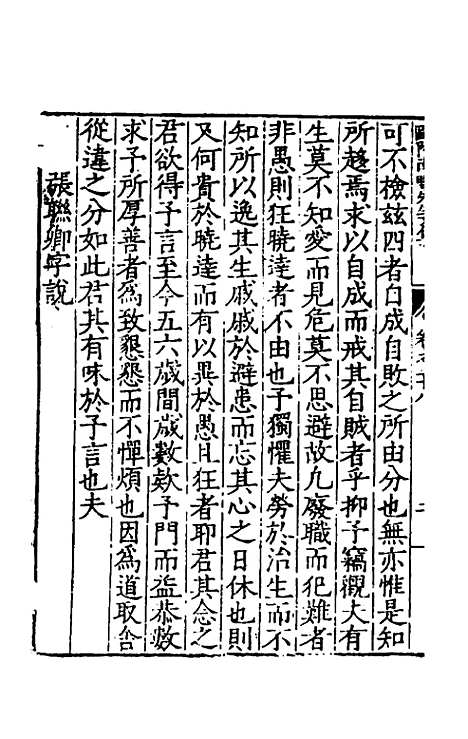 可不檢茲四者自成自敗之所由分也無亦惟是知
所趨焉求以自成而戒其自賊者乎抑予竊觀夫有
生莫不知愛而見危莫不思避故凡廢職而犯難者
非愚則狂曉達者不由也予獨懼夫勞於治生而不
知所以逸其生戚戚於避患而忘其心之日休也則
又何貴於曉達而有以異於愚且狂者耶君其念之
君欲得予言至今五六歲間歲數欵予門而益恭數
求予所厚善者為致懇懇而不憚煩也因為道取舍
從違之分如此君其有味於予言也夫
張聯卿字說